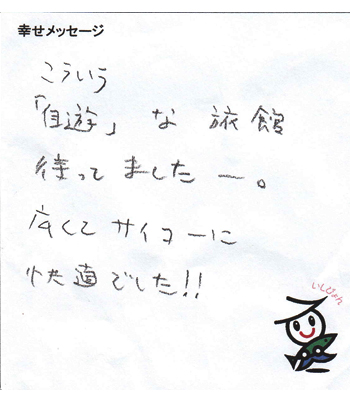 幸せメッセージ
こういう
「自遊」な 旅館
待ってましたー。
広くて サイコーに
快適でした!!
いしぴょん